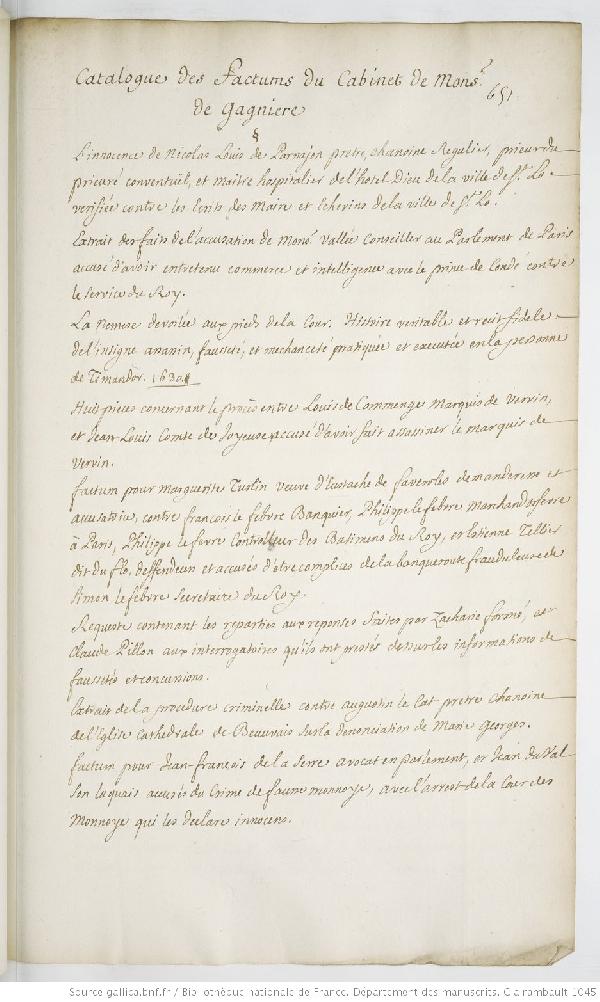 Catalogue des Factums du Cabinet de Mons.r
651
de Gagniere
§
L'innocence de Nicolas Louis de Parnajon pretre, chanoine Regulier, prieur du
prieuré conventuel, et maitre hospitalier de l'hotel Dieu de la ville de S.t Lo
verifiée contre les Ecrits des Maire et Echevins de la ville de S.t Lo.
Extrait des faits de l'accusation de Mons.r Vallée Conseiller au Parlement de Paris
accusé d'avoir entretenu commerce et intelligence avec le prince de Condé contre
le service du Roy.
La Nemese devoilée aux pieds de la Cour. Histoire veritable et recit fidele
de l'insigne assassin, fausseté, et mechanceté pratiquée et executée en la personne
de Timandor. 1630.
Huit pieces concernant le procès entre Louis de Commenge Marquis de Vervin,
et Jean Louis Comte de Joyeuse accusé d'avoir fait assassiner le marquis de
Vervin.
factum pour marguerite Turlin veuve d'Eustache de faverolles demanderesse et
accusatrice, contre francois le febvre Banquier, Philippe le febvre Marchand
à Paris, Philippe le fevre Controlleur des Batimens du Roy, et Estienne Tellier
dit du flo, deffendeurs et accusés d'etre complices de la banqueroute frauduleuse de
Simon le febvre Secretaire du Roy.
Requeste contenant les reparties aux reponses faites par Zacharie formé, et
Claude Pillon aux interrogatoires qu'ils ont pretés dessus les informations de
faussetés et concussions.
Extrait de la procedure criminelle contre augustin le Cat pretre Chanoine
de l'Eglise Cathedrale de Beauvais sur la denonciation de Marie Georges.
factum pour Jean-francois de la Serre avocat en parlement, et Jean du Val
son laquais accusés du Crime de fausse monnoye, avec l'arrest de la Cour des
Monnoye qui les declare innocens.
Source gallica.bnf.fr / Bibliothèque nationale de France. Département des manuscrits. Clairambault 1045